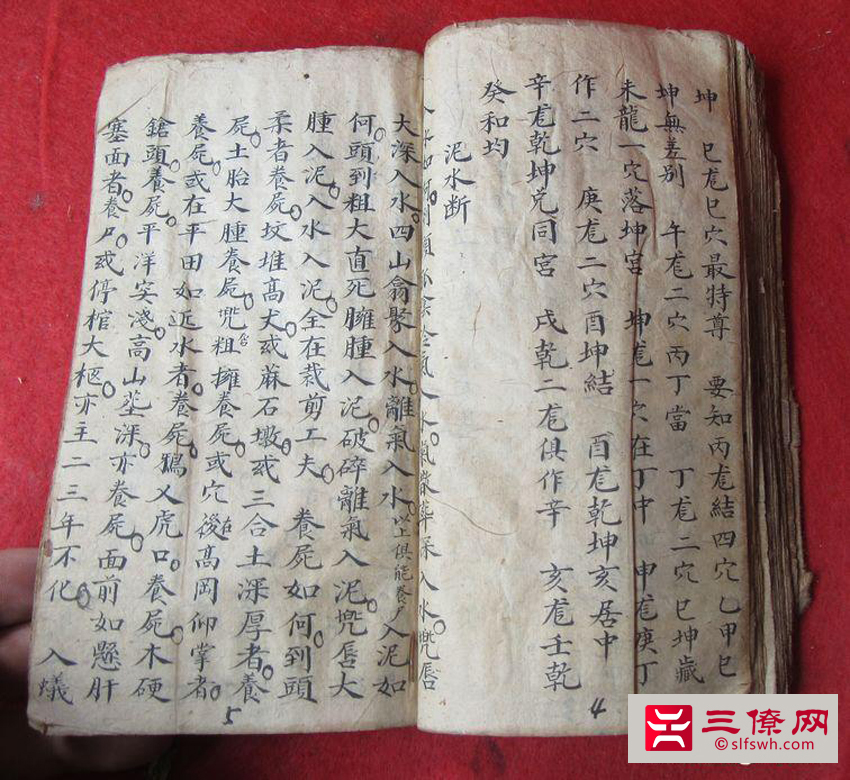 坤　巳尨巳穴最特尊　要知丙尨結四穴乙甲巳
坤無差别　午尨二穴丙丁當　丁尨二穴巳坤藏
未龍一穴落坤宮　坤尨一穴在丁中　申尨庚丁
作二穴　庚尨二穴酉坤結　酉尨乾坤亥居中
辛尨乾坤兌同宮　戌乾二尨俱作辛　亥尨壬乾
癸和均
泥水断
入水如何到頭 氣入水氣 葬深入水兜唇
大深入水四山翕聚入水離氣入水以上俱能養尸入泥如
何頭到粗大直死臃腫入泥破碎離氣入泥兜唇大
腫入泥入水入泥全在裁剪工夫　養屍如何到頭
柔者養屍坟堆高大或蔴石墩或三合土深厚者養
屍土胎大腫養屍兜粗擁養屍或穴後高岡仰掌者
養屍或在平田如近水者養屍鴉乂虎口養屍木硬
鎗頭養屍平洋实淺高山塟深亦養屍面前如懸肝
塞面者養尸或停棺大柩亦主二三年不化　入蟻
4
5
三僚网
©slfswh.com